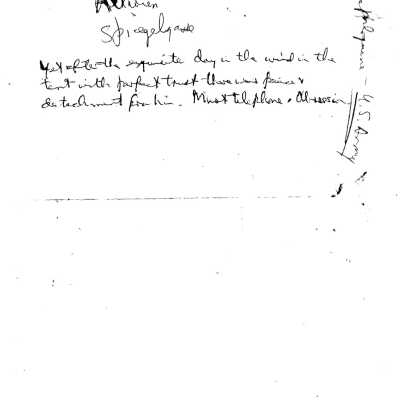 Spiegelgasse
Yet after the exquisite day in the wind in the
tent with perfect trust there was peace &
detachment for him. Must telephone. Obsession
U.S. Army